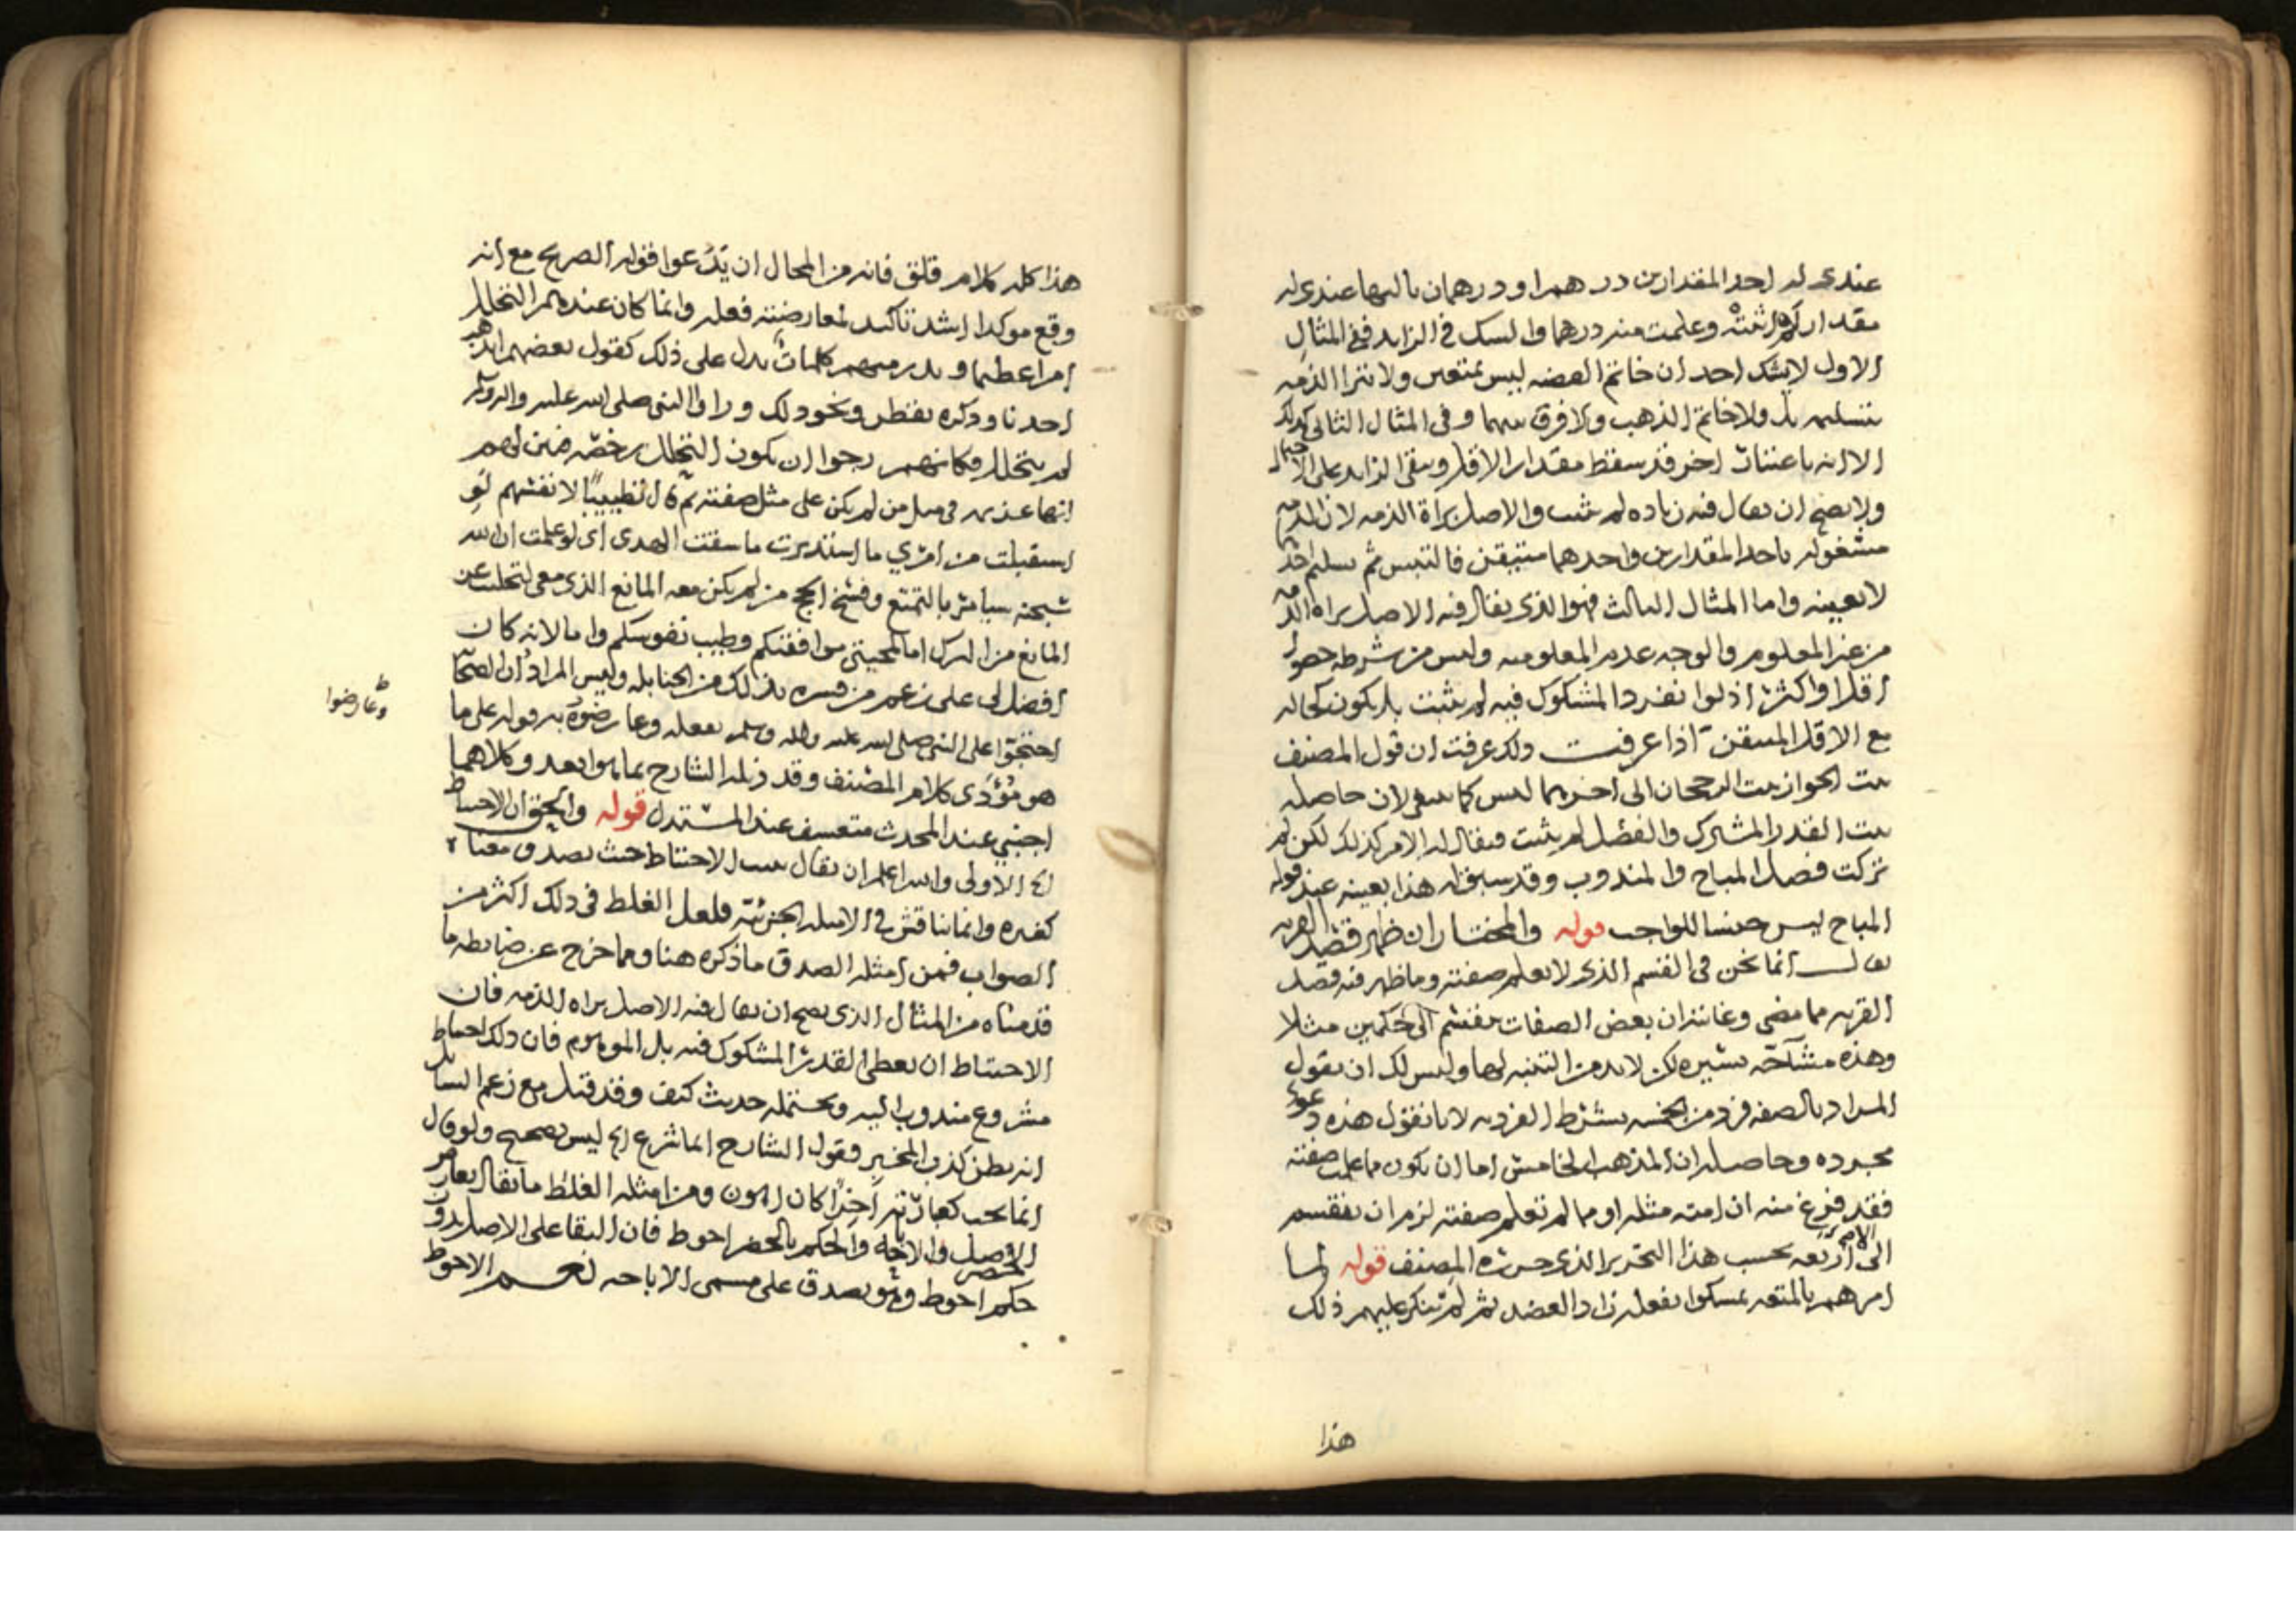 عندي له احد المقدارين درهم او درهمان ثالثها عندي له
مقدار وعلمت منه درهما والشك في الزايد ففي المثال
الاول لا يشك احد ان خاتم الفضه ليس بمتعين ولا تبرا الذمه
بتسليمه بل ولا خاتم الذهب ولا فرق بينهما وفي المثال الثاني كذلك
الا انه باعتبار اخر قد سقط مقدار الاقل وبقي الزايد على
ولا يصح ان يقال فيه زياده لم تثبت والاصل براة الذمه لان الذمه
مشغوله باحد المقدارين واحدهما متيقن فالتبس ثم تسليم احد
لا بعينه واما المثال الثالث فهو الذي يقال فيه الاصل براه الذمه
من غير المعلوم والوجه عدم المعلوميه وليس من شرطه حصول
اقل او اكثر اذ لو انفرد المشكوك فيه لم يثبت بل يكون كحاله
مع الاقل المتيقن اذا عرفت ذلك عرفت ان قول المصنف
يثبت الجواز يثبت الرجحان الى اخرهما ليس كما ينبغي لان حاصله
يثبت القدر المشترك والفضل لم يثبت فيقال له الامر كذلك لكن لم
تركت فصل المباح والمندوب وقد سبق له هذا بعينه عند قوله
المباح ليس جنسا للواجب قوله والمختار ان ظهر قصد القربه
يقال انما نحن في القسم الذي لا يعلم صفته وما ظهر فيه قصد
القربه مما مضى وغايته ان بعض الصفات منقسم الى حكمين مثلا
وهذه مشاحه يسيره لكن لا بد من التنبه لها وليس لك ان تقول
المراد بالصفه فرد من الجنسه بشرط الفرديه لانا نقول هذه دعوى
مجرده وحاصله ان المذهب الخامس اما ان يكون مما علمت صفته
فقد فرغ منه ان امته مثله او مما لم تعلم صفته لزم ان ينقسم
الى الاربعه بحسب هذا التحرير الذي حرره المصنف قوله لما
امرهم بالمتعه تمسكوا بفعله زاد العضد ثم لم ينكر عليهم ذلك
هذا
هذا كله كلام قلق فانه من المحال ان يدعوا قوله الصريح مع انه
وقع موكدا اشد تاكيد لمعارضته فعله وانما كان عندهم التحلل
امرا عظيما وبدر منهم كلمات تدل على ذلك كقول بعضهم ايذهب
احدنا وذكره يقطر ونحو ذلك وراوا النبي صلى الله عليه واله وسلم
لم يتحلل فكانهم رجوا ان يكون التحلل رخصه فبين لهم
انها عزيمه في مثل من لم يكن على مثل صفته ثم قال تطييبا لانفسهم لو
استقبلت من امري ما استدبرت ما سقت الهدي اي لو علمت ان الله
سبحنه سيامر بالتمتع وفسخ الحج من لم يكن معه المانع الذي معي لتحللت عن
المانع من الترك اما لمحبتي موافقتكم وطيب نفوسكم واما لانه كان
افضل لي على زعم من فسره بذلك من الحنابله وليس المراد ان الصحابة
احتجوا على النبي صلى الله عليه واله وسلم بفعله وعارضوه به قوله على ما
هو مؤدى كلام المصنف وقد ذيله الشارح بما هو ابعد وكلاهما
اجنبي عند المحدث متعسف عند المستدل قوله والحق ان الاحتياط
الخ الاولى والله اعلم ان يقال يثبت الاحتياط حيث يصدق معناه
كغيره وانما يناقش في الامثله الجزئيه فلعل الغلط في ذلك اكثر من
الصواب فمن امثله الصدق ما ذكره هنا ومما خرج عن ضابطه ما
قدمناه من المثال الذي يصح ان يقال فيه الاصل براه الذمه فان
الاحتياط ان يعطى القدر المشكوك فيه بل الموهوم فان ذلك احتياط
مشروع مندوب اليه ويحتمله حديث كيف وقد قيل مع زعم السائل
انه يظن كذب المخبر فقول الشارح انما شرع الخ ليس بصحيح ولو قال
انما يجب كعبارته اخرا كان اهون ومن امثله الغلط ما يقال تعارض
الاصل والاباحه والحكم بالحضر احوط فان البقا على الاصل بدون
حكم احوط وهو يصدق على مسمى الاباحه نعم الاحوط
وعارضوا